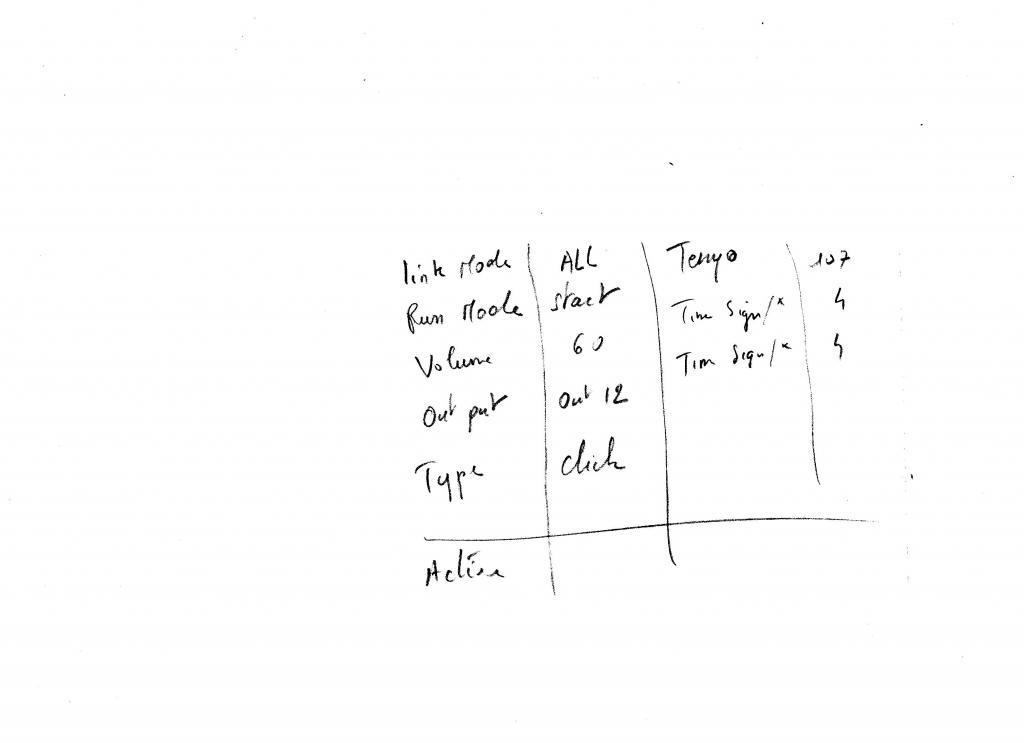 link Mode ALL Tempo 107
Run Mode start Time Sign/* 4
Volume 60 Time Sign/* 4
Out put Out 12
Type click
Active